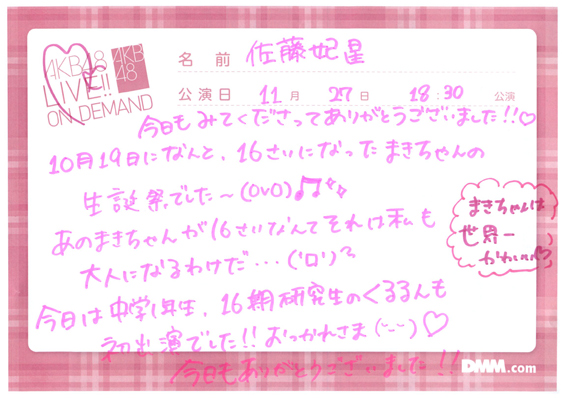 AKB48
LIVE!!
ON DEMAND
AKB
48
名前 佐藤妃星
公演日 11月 27日 18:30 公演
今日もみてくださってありがとうございました!!♡
10月19日になんと、16さいになったまきちゃんの
生誕祭でした〜(OvO)♫
あのまきちゃんが16さいなんてそれは私も
大人になるわけだ...('ロ')
まきちゃんは
世界一
かわいい♡
今日は中学1年生、16期研究生のくるるんも
初出演でした!!おつかれさま(˘ー˘)♡
今日もありがとうございました!!
DMM.com